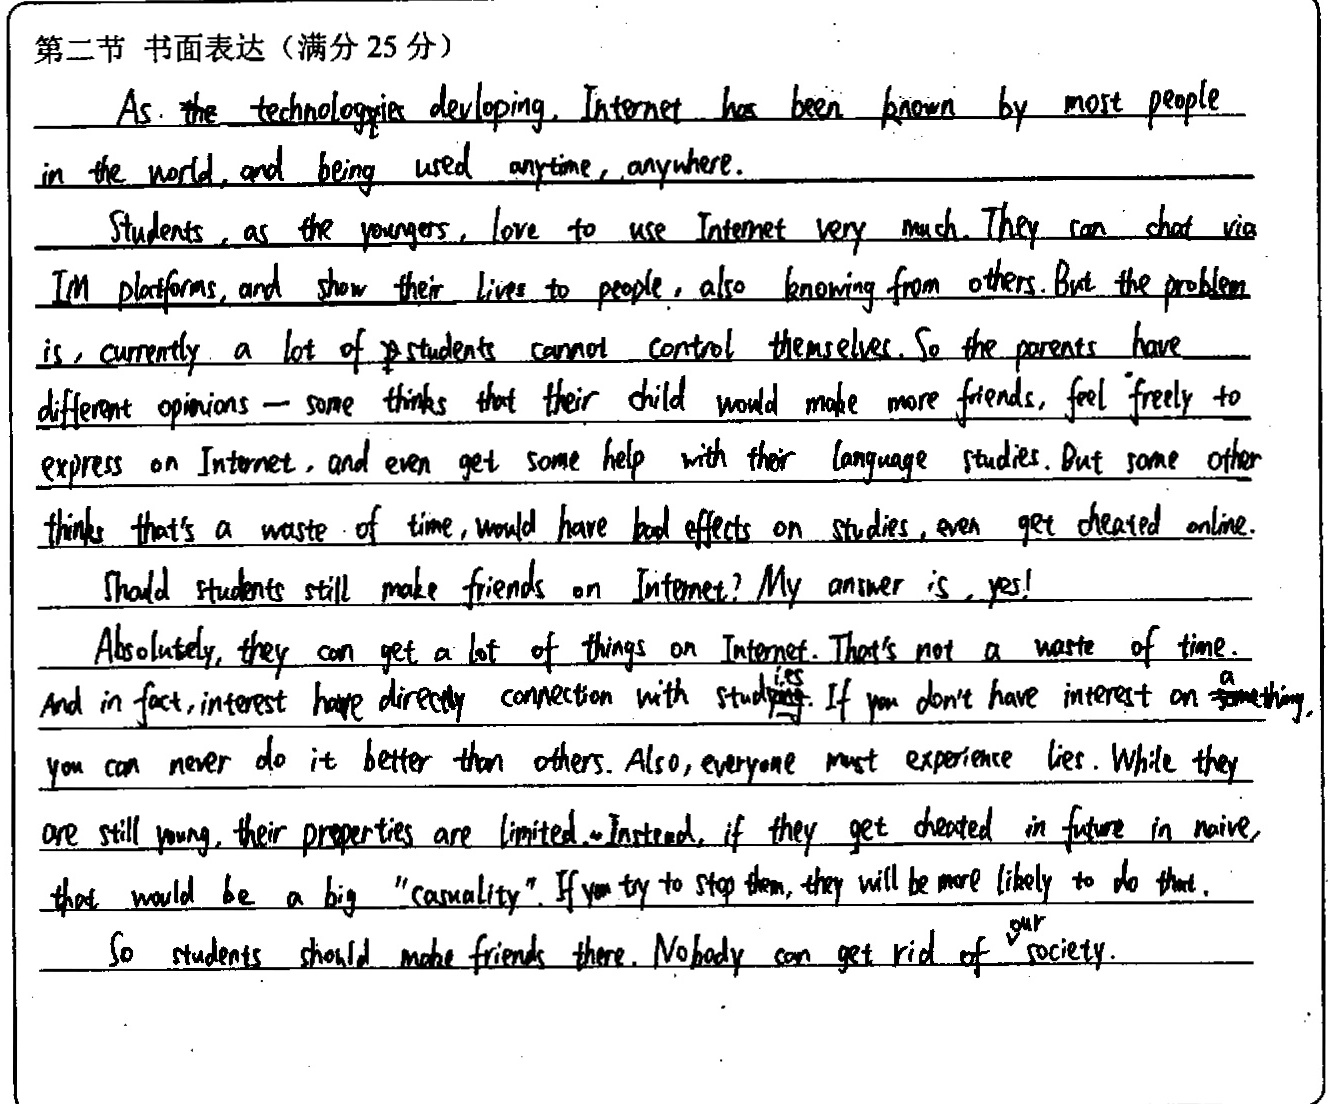 第二节 书面表达（满分 25 分）
As the technologies devloping, Internet has been known by most people
in the world, and being used anytime, anywhere.
Students, as the youngers, love to use Internet very much. They can chat via
IM platforms, and show their lives to people, also knowing from others. But the problem
is, currently a lot of students cannot control themselves. So the parents have
different opinions — some thinks that their child would make more friends, feel freely to
express on Internet, and even get some help with their language studies. But some other
thinks that's a waste of time, would have bad effects on studies, even get cheated online.
Should students still make friends on Internet? My answer is, yes!
Absolutely, they can get a lot of things on Internet. That's not a waste of time.
And in fact, interest have directly connection with studies. If you don't have interest on a thing,
you can never do it better than others. Also, everyone must experience lies. While they
are still young, their properties are limited. Instead, if they get cheated in future in naive,
that would be a big "casuality". If you try to stop them, they will be more likely to do that.
So students should make friends there. Nobody can get rid of our society.